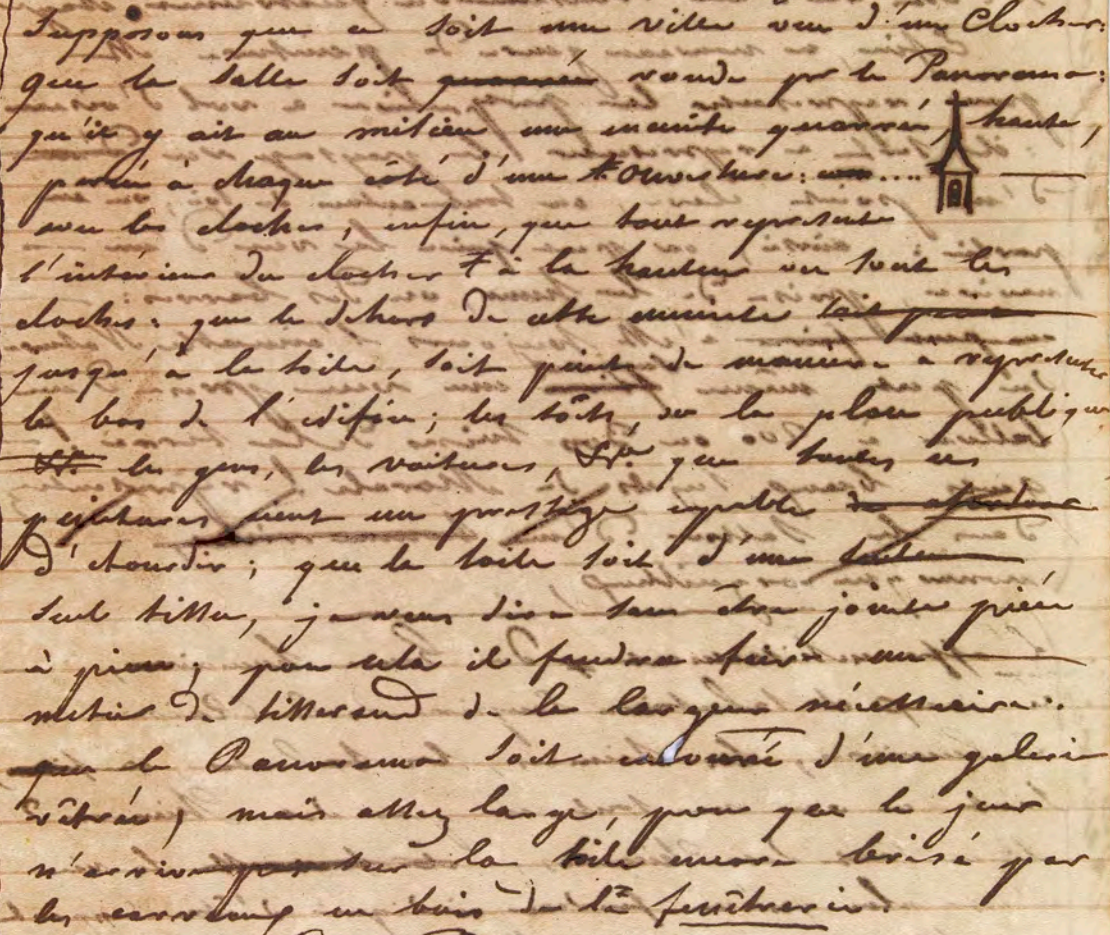 Supposons que ce soit une ville vue d'un Clocher:
que la salle soit ronde pr le Panorama:
qu'il y ait au milieu une enceinte quarrée, haute,
percée à chaque côté d'une ouverture: ....
avec les cloches, enfin, que tout représente
l'intérieur du clocher à la hauteur ou sont les
cloches: que le dehors de cette enceinte
jusqu'à la toile, soit peint de manière a représenter
le bas de l'édifice; les tôits, ou la place publique
les gens, les voitures, &a. que toutes ces
peintures aient un prestige capable
d'étourdir; que la toile soit d'une
seul tissu, je veux dire sans être jointe pièce
à pièce; pour cela il faudra faire un
metier de tisserand de la largeur nécessaire:
que le Panorama soit entouré d'une galerie
vitrée, mais assez large, pour que le jour
n'arrive sur la toile encore brisé par
les carreaux en bois de la fenêtrerie.